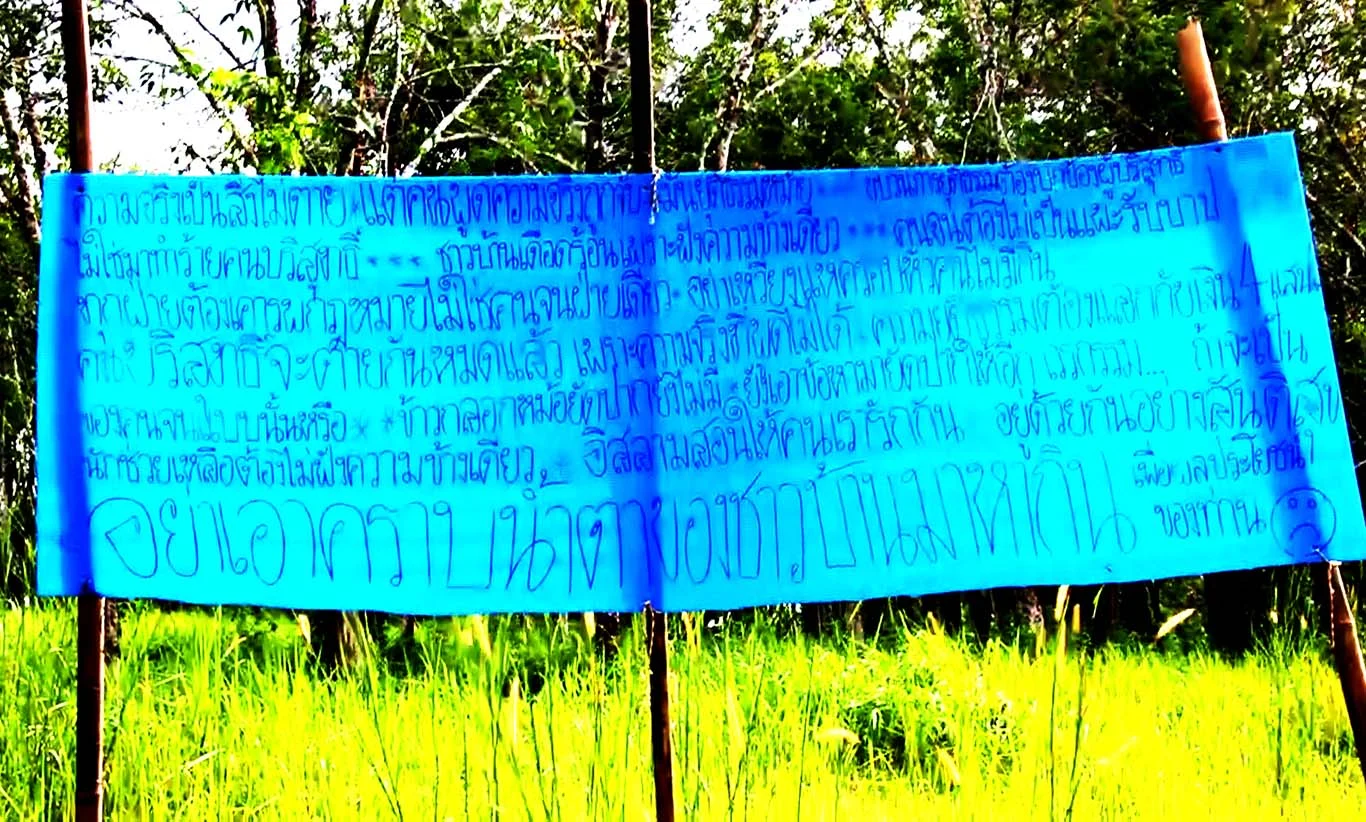 ความจริงเป็นสิ่งไม่ตาย * แต่คนพูดความจริง ขบวนการยุติธรรมต้องปกป้องผู้บริสุทธิ์
ไม่ใช่มาทำร้ายคนบริสุทธิ์ *** ชาวบ้านเดือดร้อนเพราะฟังความข้างเดียว *** คนจนต้องไม่เป็นแพะรับบาป
ทุกฝ่ายต้องเคารพกฎหมายไม่ใช่คนจนฝ่ายเดียว
คนบริสุทธิ์จะตายกันหมดแล้ว เพราะความจริง ไม่ได้ ความยุติธรรมต้องแลกกับเงิน 4 แสน
ของคนจน แบบนั้นหรือ ** ข้าวกลอกหม้อยัดปากยังไม่มี ยังเอาข้อหามายัดปากให้อีก เวรกรรม... ถ้าจะเป็น
นักช่วยเหลือต้องไม่ฟังความข้างเดียว อิสลามสอนให้คนเรารักกัน อยู่ด้วยกันอย่างสันติสุข
อย่าเอาคราบน้ำตาของชาวบ้านมาหากิน เพื่อผลประโยชน์
ของท่าน